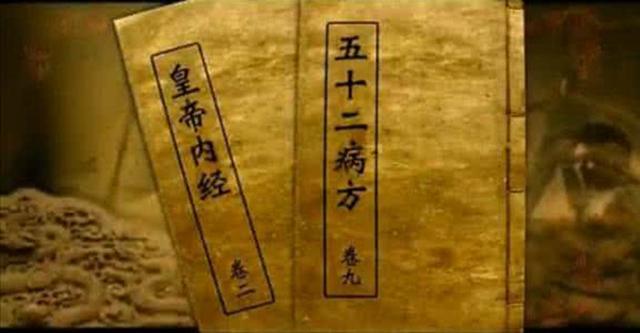 五十二病方
卷九
皇帝内经
卷二